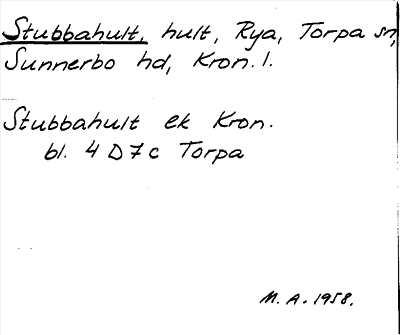 Stubbahult, hult, Rya, Torpa sn,
Sunnerbo hd, Kron. l.
Stubbahult ek Kron.
bl. 4 D 7 c Torpa
M. A. 1958.